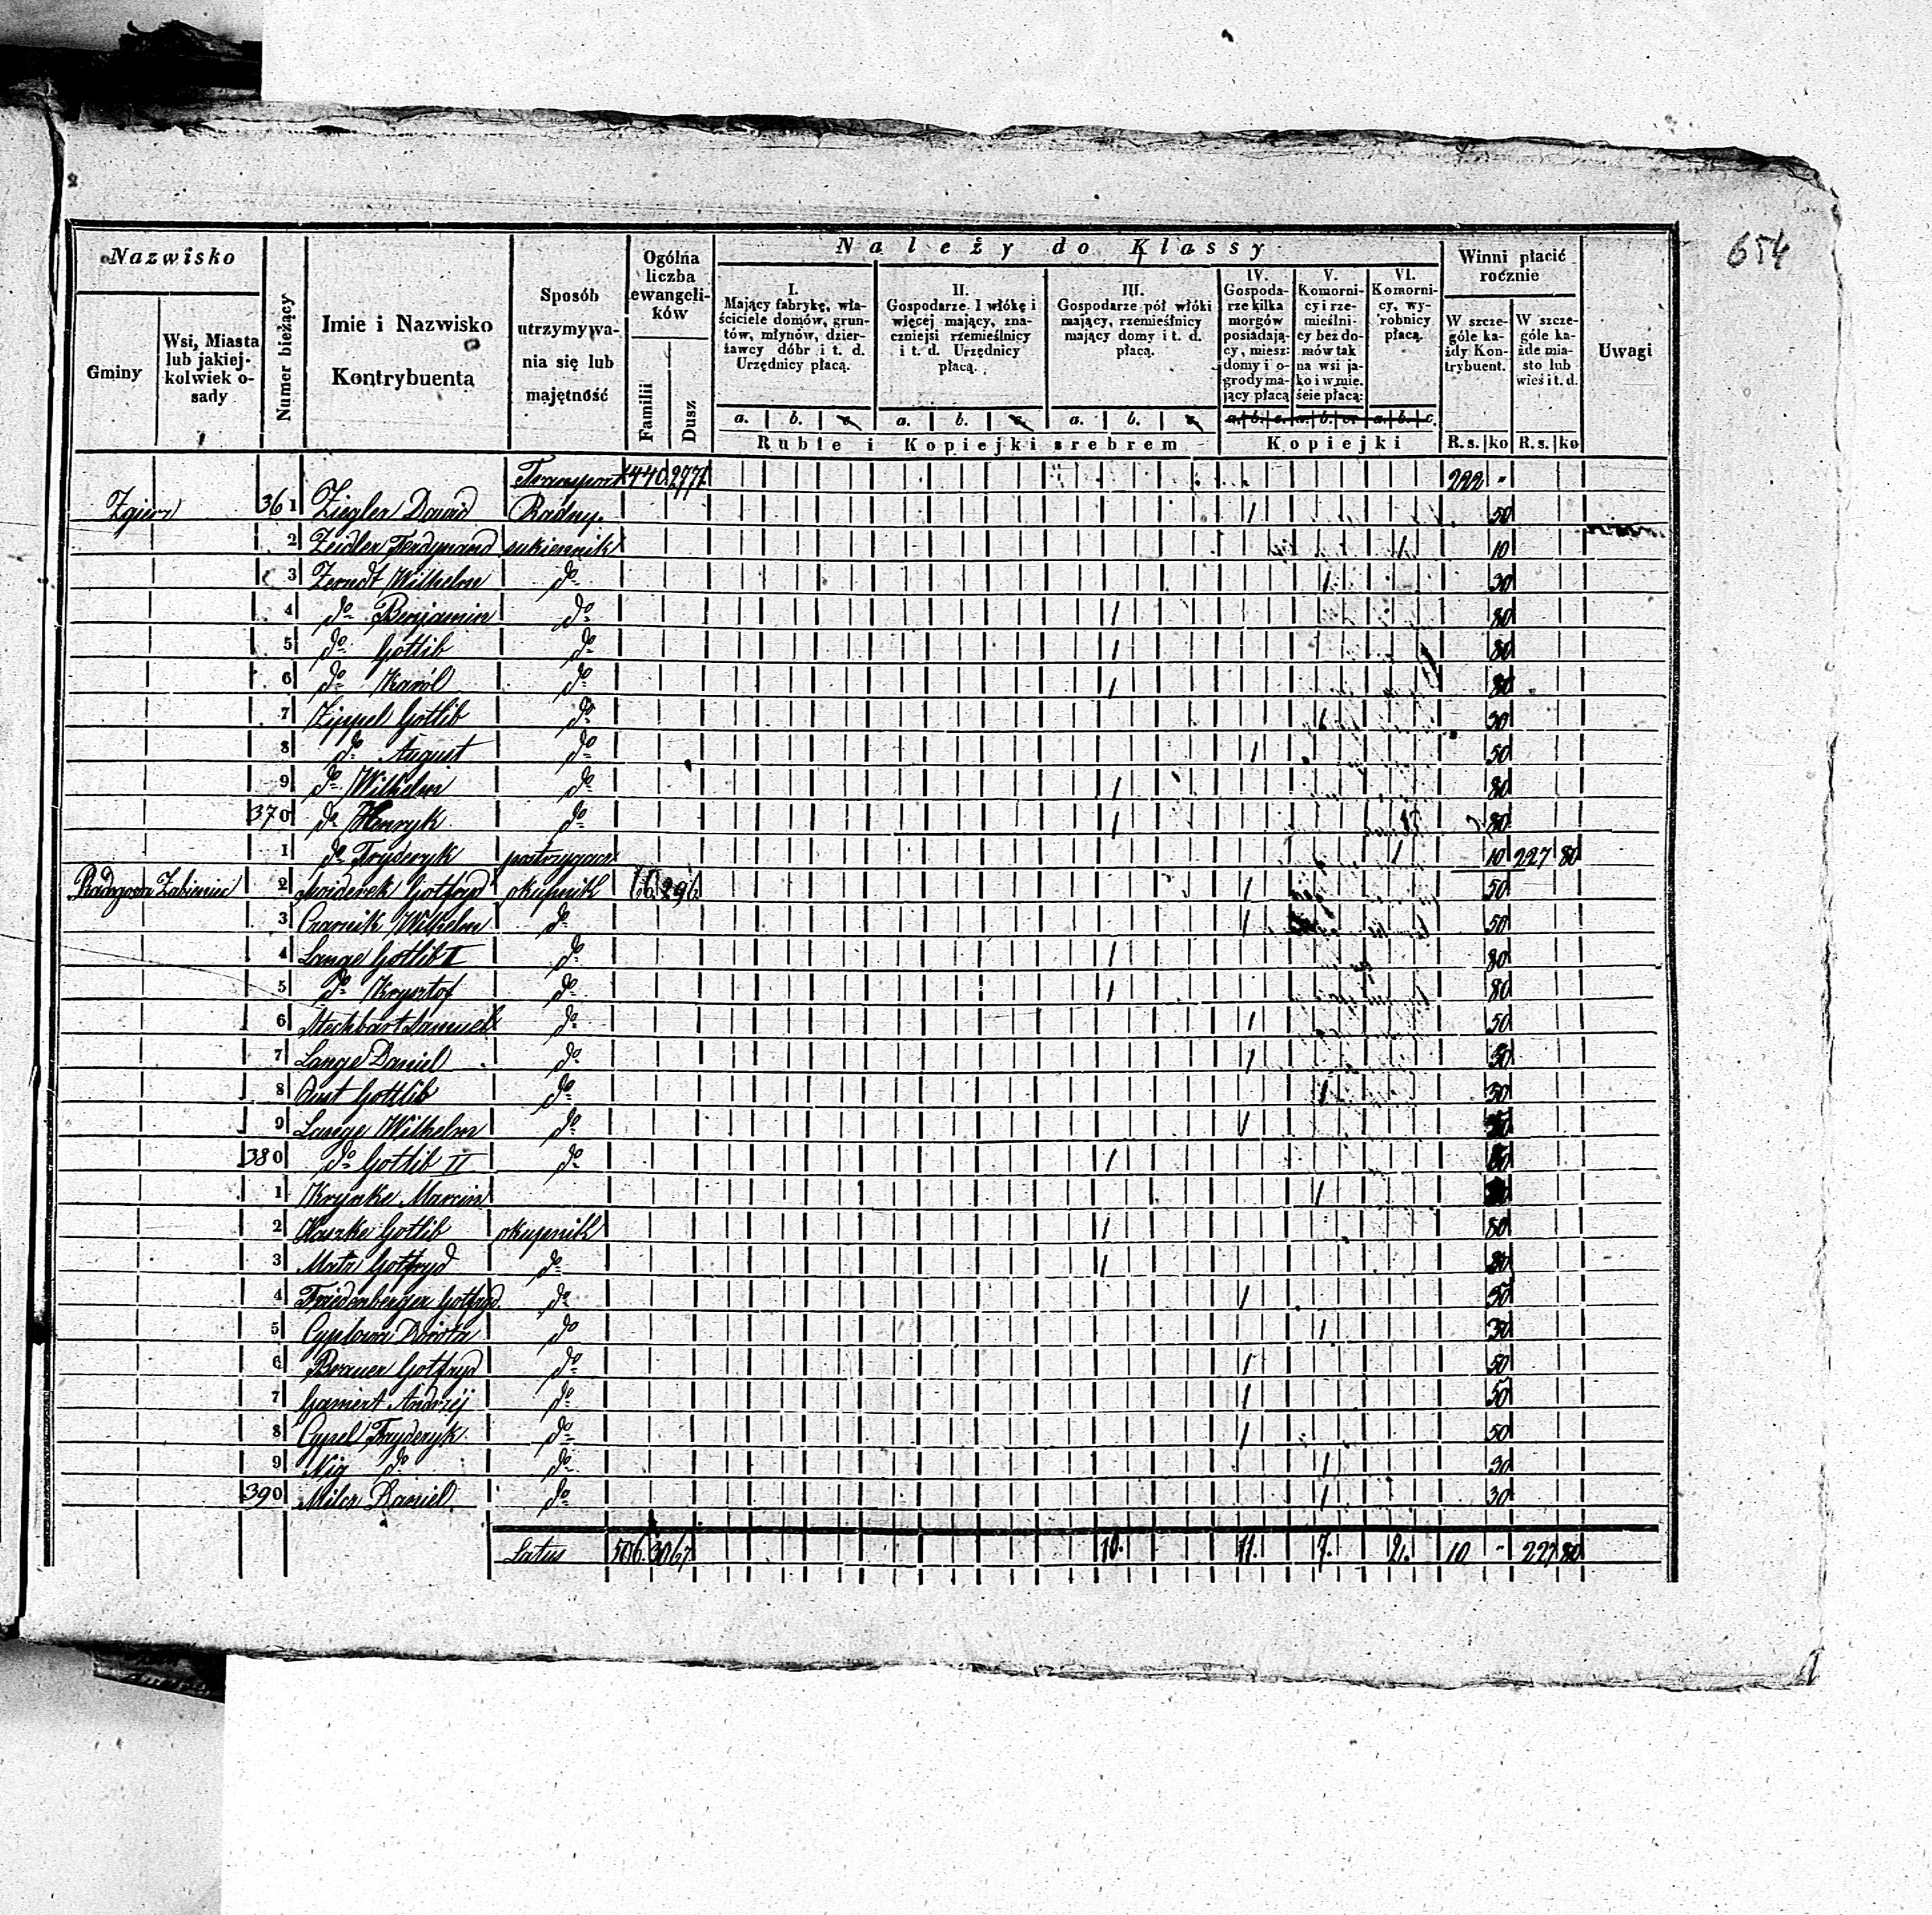 654
Nazwisko
Gminy
Wsi, Miasta lub jakiej-kolwiek o-sady
Numer bieżący
Imie i Nazwisko Kontrybuenta
Sposób utrzymywa-nia się lub majętność
Ogólna liczba ewangeli-ków
Familii
Dusz
Należy do Klassy
I. Mający fabrykę, wła-ściciele domów, grun-tów, młynów, dzier-żawcy dóbr i t. d. Urzędnicy płacą.
II. Gospodarze. 1 włókę i więcej mający, zna-czniejsi rzemieślnicy i t. d. Urzędnicy płacą.
III. Gospodarze pół włóki mający, rzemieślnicy mający domy i t. d. płacą.
IV. Gospoda-rze kilka morgów posiadają-cy, miesz: domy i o-grody ma-jący płacą
V. Komorni-cy i rze-mieślni-cy bez do-mów tak na wsi ja-ko i w mie-ście płacą:
VI. Komorni-cy, wy-robnicy płacą.
Winni płacić rocznie
W szcze-góle ka-żdy Kon-trybuent.
W szcze-góle ka-żde mia-sto lub wieś i t. d.
Uwagi
a. b. c. a. b. c. a. b. c. a. b. c. a. b. c. a. b. c.
Ruble i Kopiejki srebrem Kopiejki R. s. ko R. s. ko
Transport 1440. 2771. 222 -
Zgierz 361 Ziegler Dawid Radny. 1 50
2 Zeidler Ferdynand sukiennik 1 10
3 Zerndt Wilhelm do 1 30
4 do Benjamin do 1 80
5 do Gottlib do 1 80
6 do Karól do 1 80
7 Zippel Gotlib do 1 30
8 do August do 1 50
9 do Wilhelm do 1 80
370 do Henryk do 1 80
1 do Fryderyk postrzygacz 1 10 227 80
Radogoszcz Żabieniec 2 Gotfryd okupnik 66. 296. 1 50
3 Czarnik Wilhelm do 1 50
4 Lange Gotlib I do 1 80
5 do Krysztof do 1 80
6 Stechbart Samuel do 1 50
7 Lange Daniel do 1 50
8 Gottlib do 1 30
9 Lange Wilhelm do 1
380 do Gotlib II do 1
1 Marcin 1
2 Gotlib okupnik 1 80
3 Matz Gotfryd do 1 80
4 Friedenberger Gotfryd do 1 50
5 Cyplowa Dorota do 1 30
6 Brauer Gotfryd do 1 50
7 Andrzéj do 1 50
8 Cypel Fryderyk do 1 50
9 do do 1 30
390 Miler Daniel do 1 30
Latus 506. 3067. 10. 11. 7. 2. 10 - 227 80